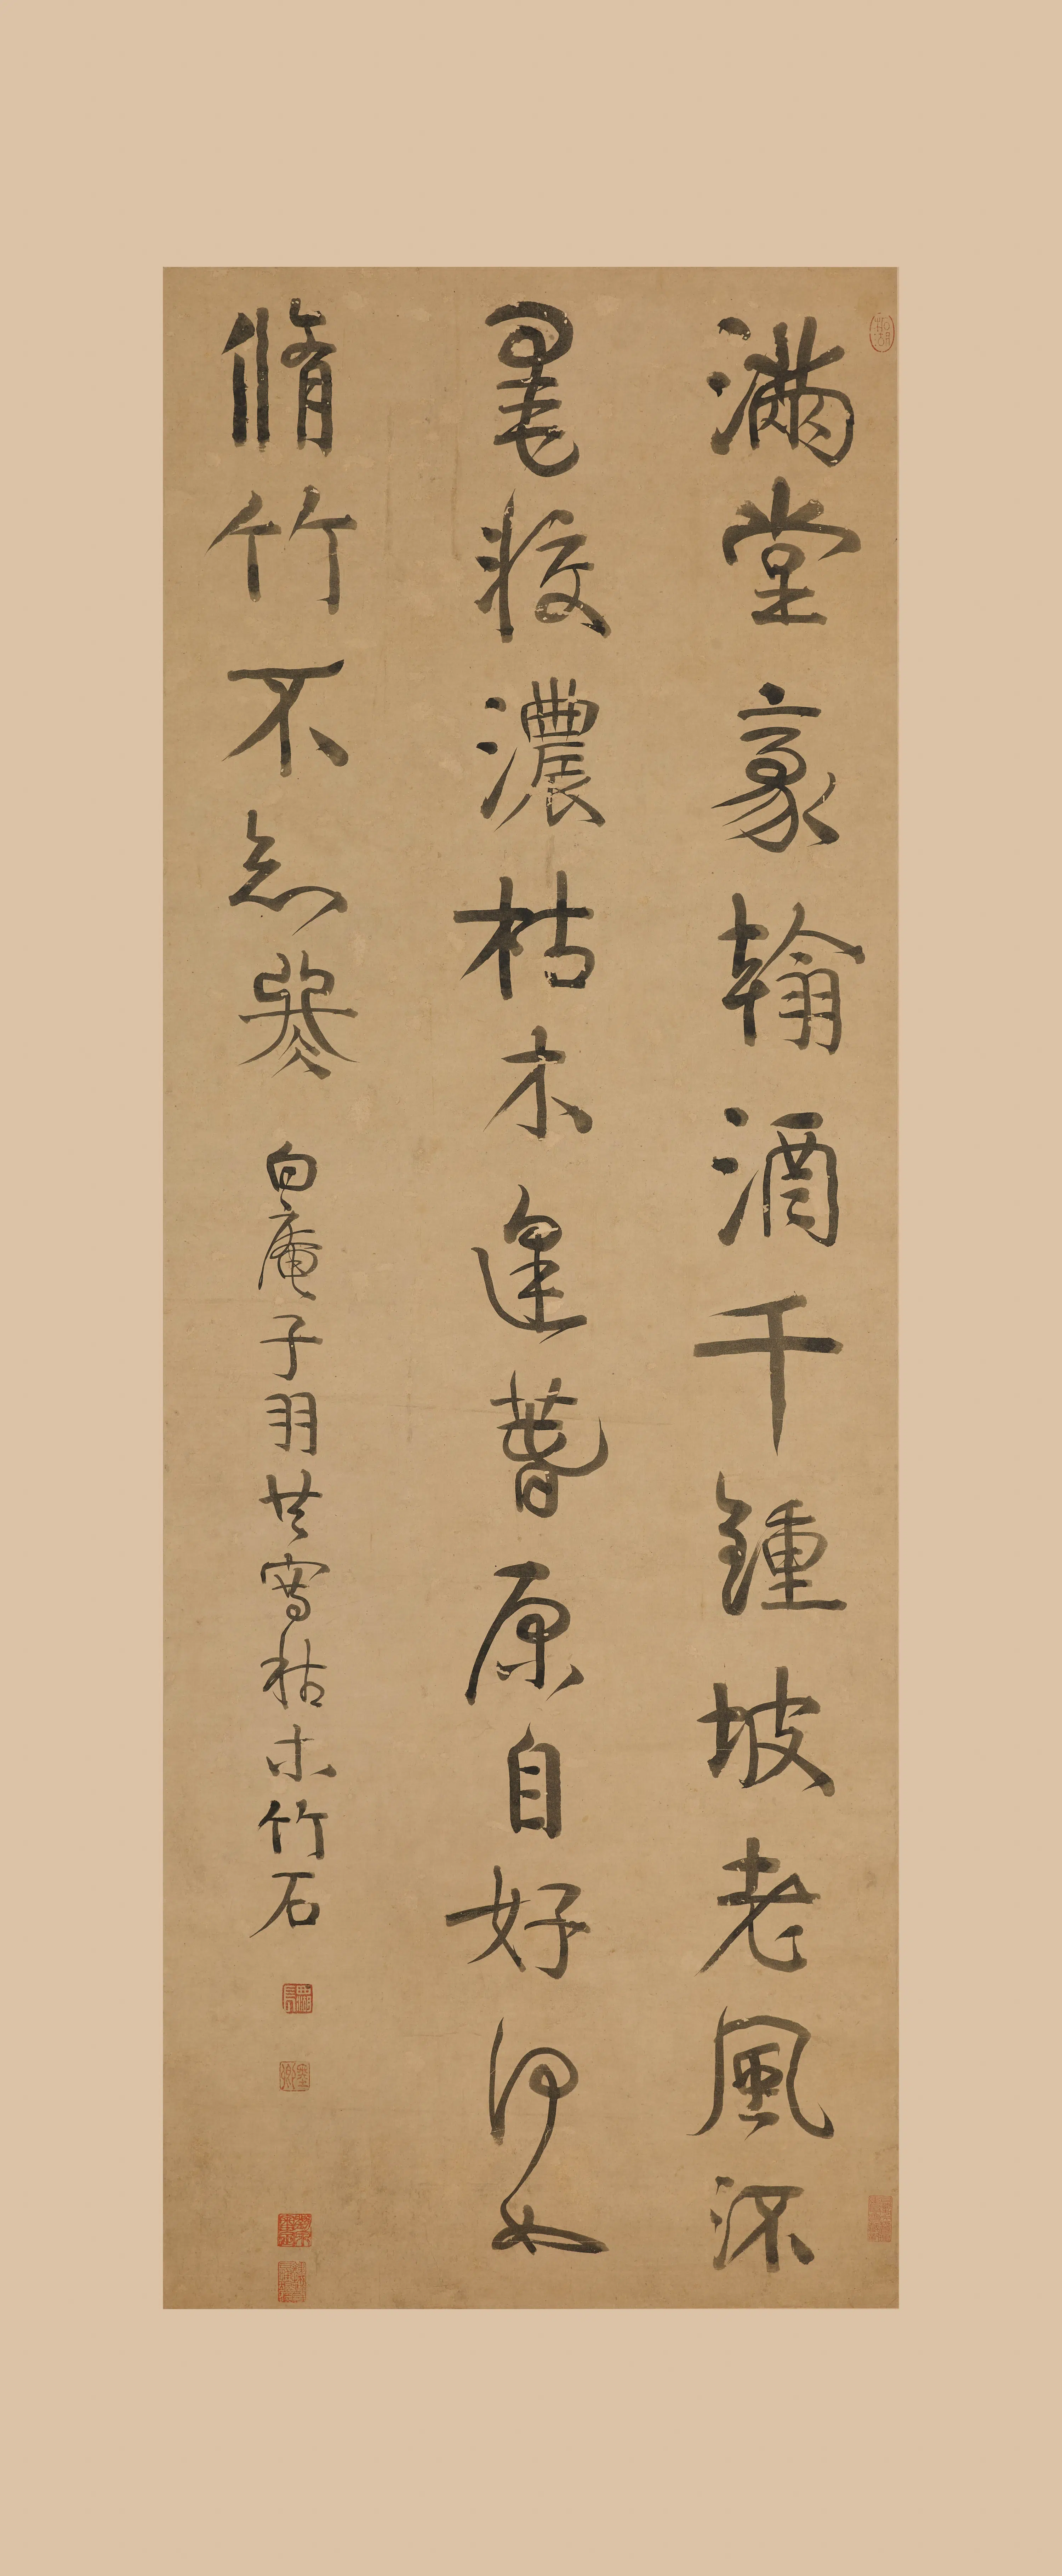 滿堂豪翰酒千鍾坡老風流
濃枯木逢春原自好何如
脩竹不忘
白庵子羽共寫枯木竹石